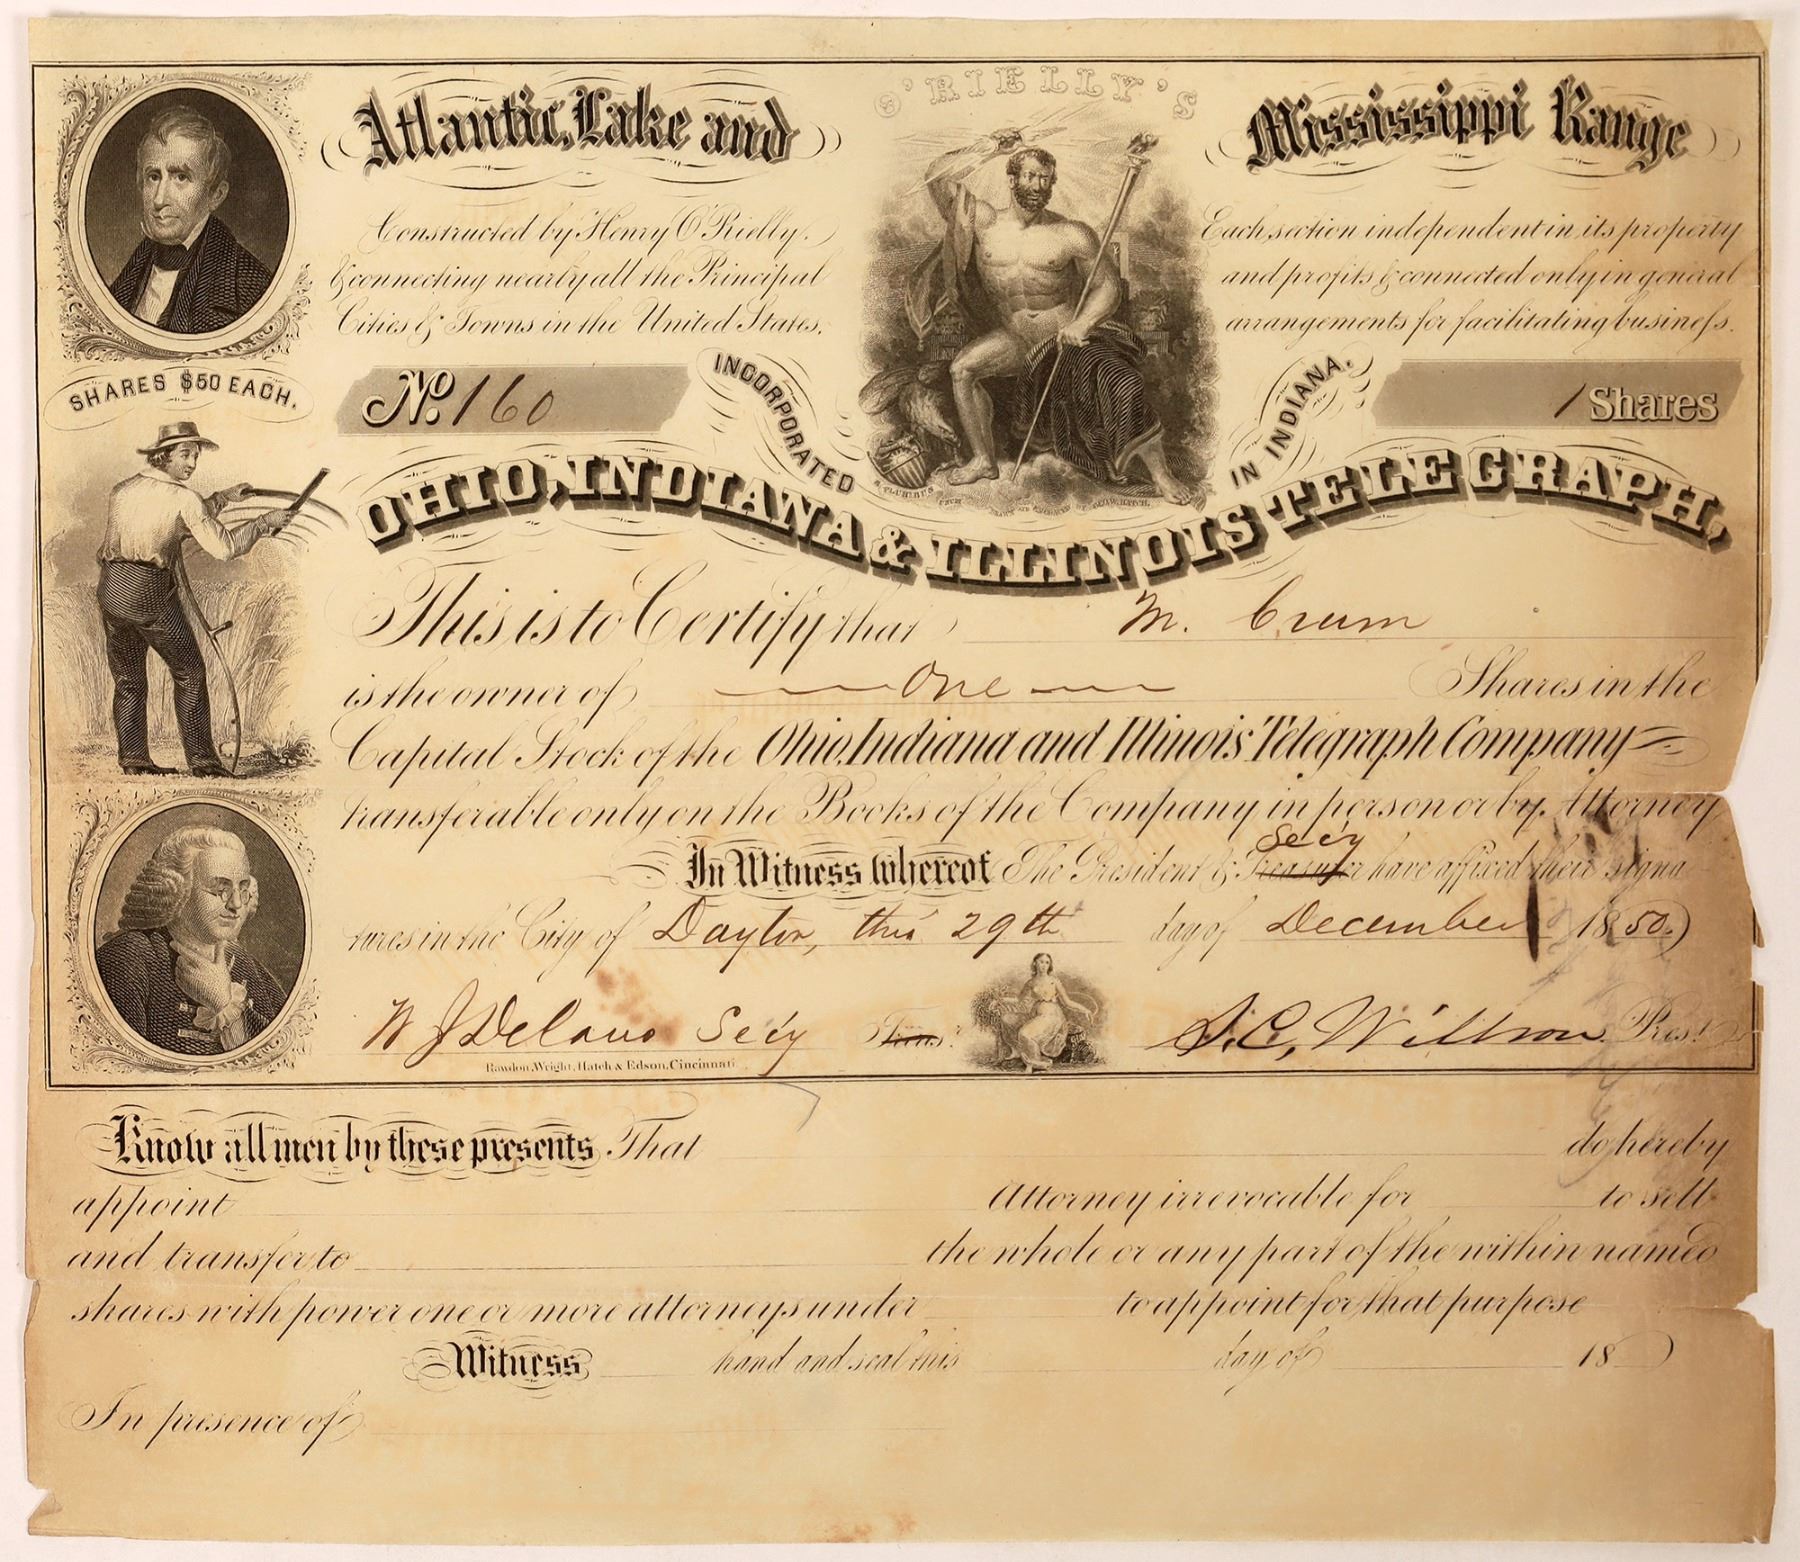 O'RIELLY'S
Atlantic, Lake and Mississippi Range
Constructed by Henry O'Rielly.
& connecting nearly all the Principal
Cities & Towns in the United States.
Each section independent in its property
and profits & connected only in general
arrangements for facilitating business.
SHARES $50 EACH.
No. 160
INCORPORATED IN INDIANA.
1 Shares
E PLURIBUS UNUM
OHIO, INDIANA & ILLINOIS TELEGRAPH,
This is to Certify that M. Crum
is the owner of One Shares in the
Capital Stock of the Ohio, Indiana and Illinois Telegraph Company
transferable only on the Books of the Company in person or by Attorney
Secy
In Witness whereof The President & Treasurer have affixed their signa
tures in the City of Dayton, this 29th day of December 1850.
W J Delano Secy Treas.r J. C. Willson Pres.t
Rawdon, Wright, Hatch & Edson, Cincinnati.
Know all men by these presents That do hereby
appoint Attorney irrevocable for to sell
and transfer to the whole or any part of the within named
shares with power one or more attorneys under to appoint for that purpose
Witness hand and seal this day of 18
In presence of